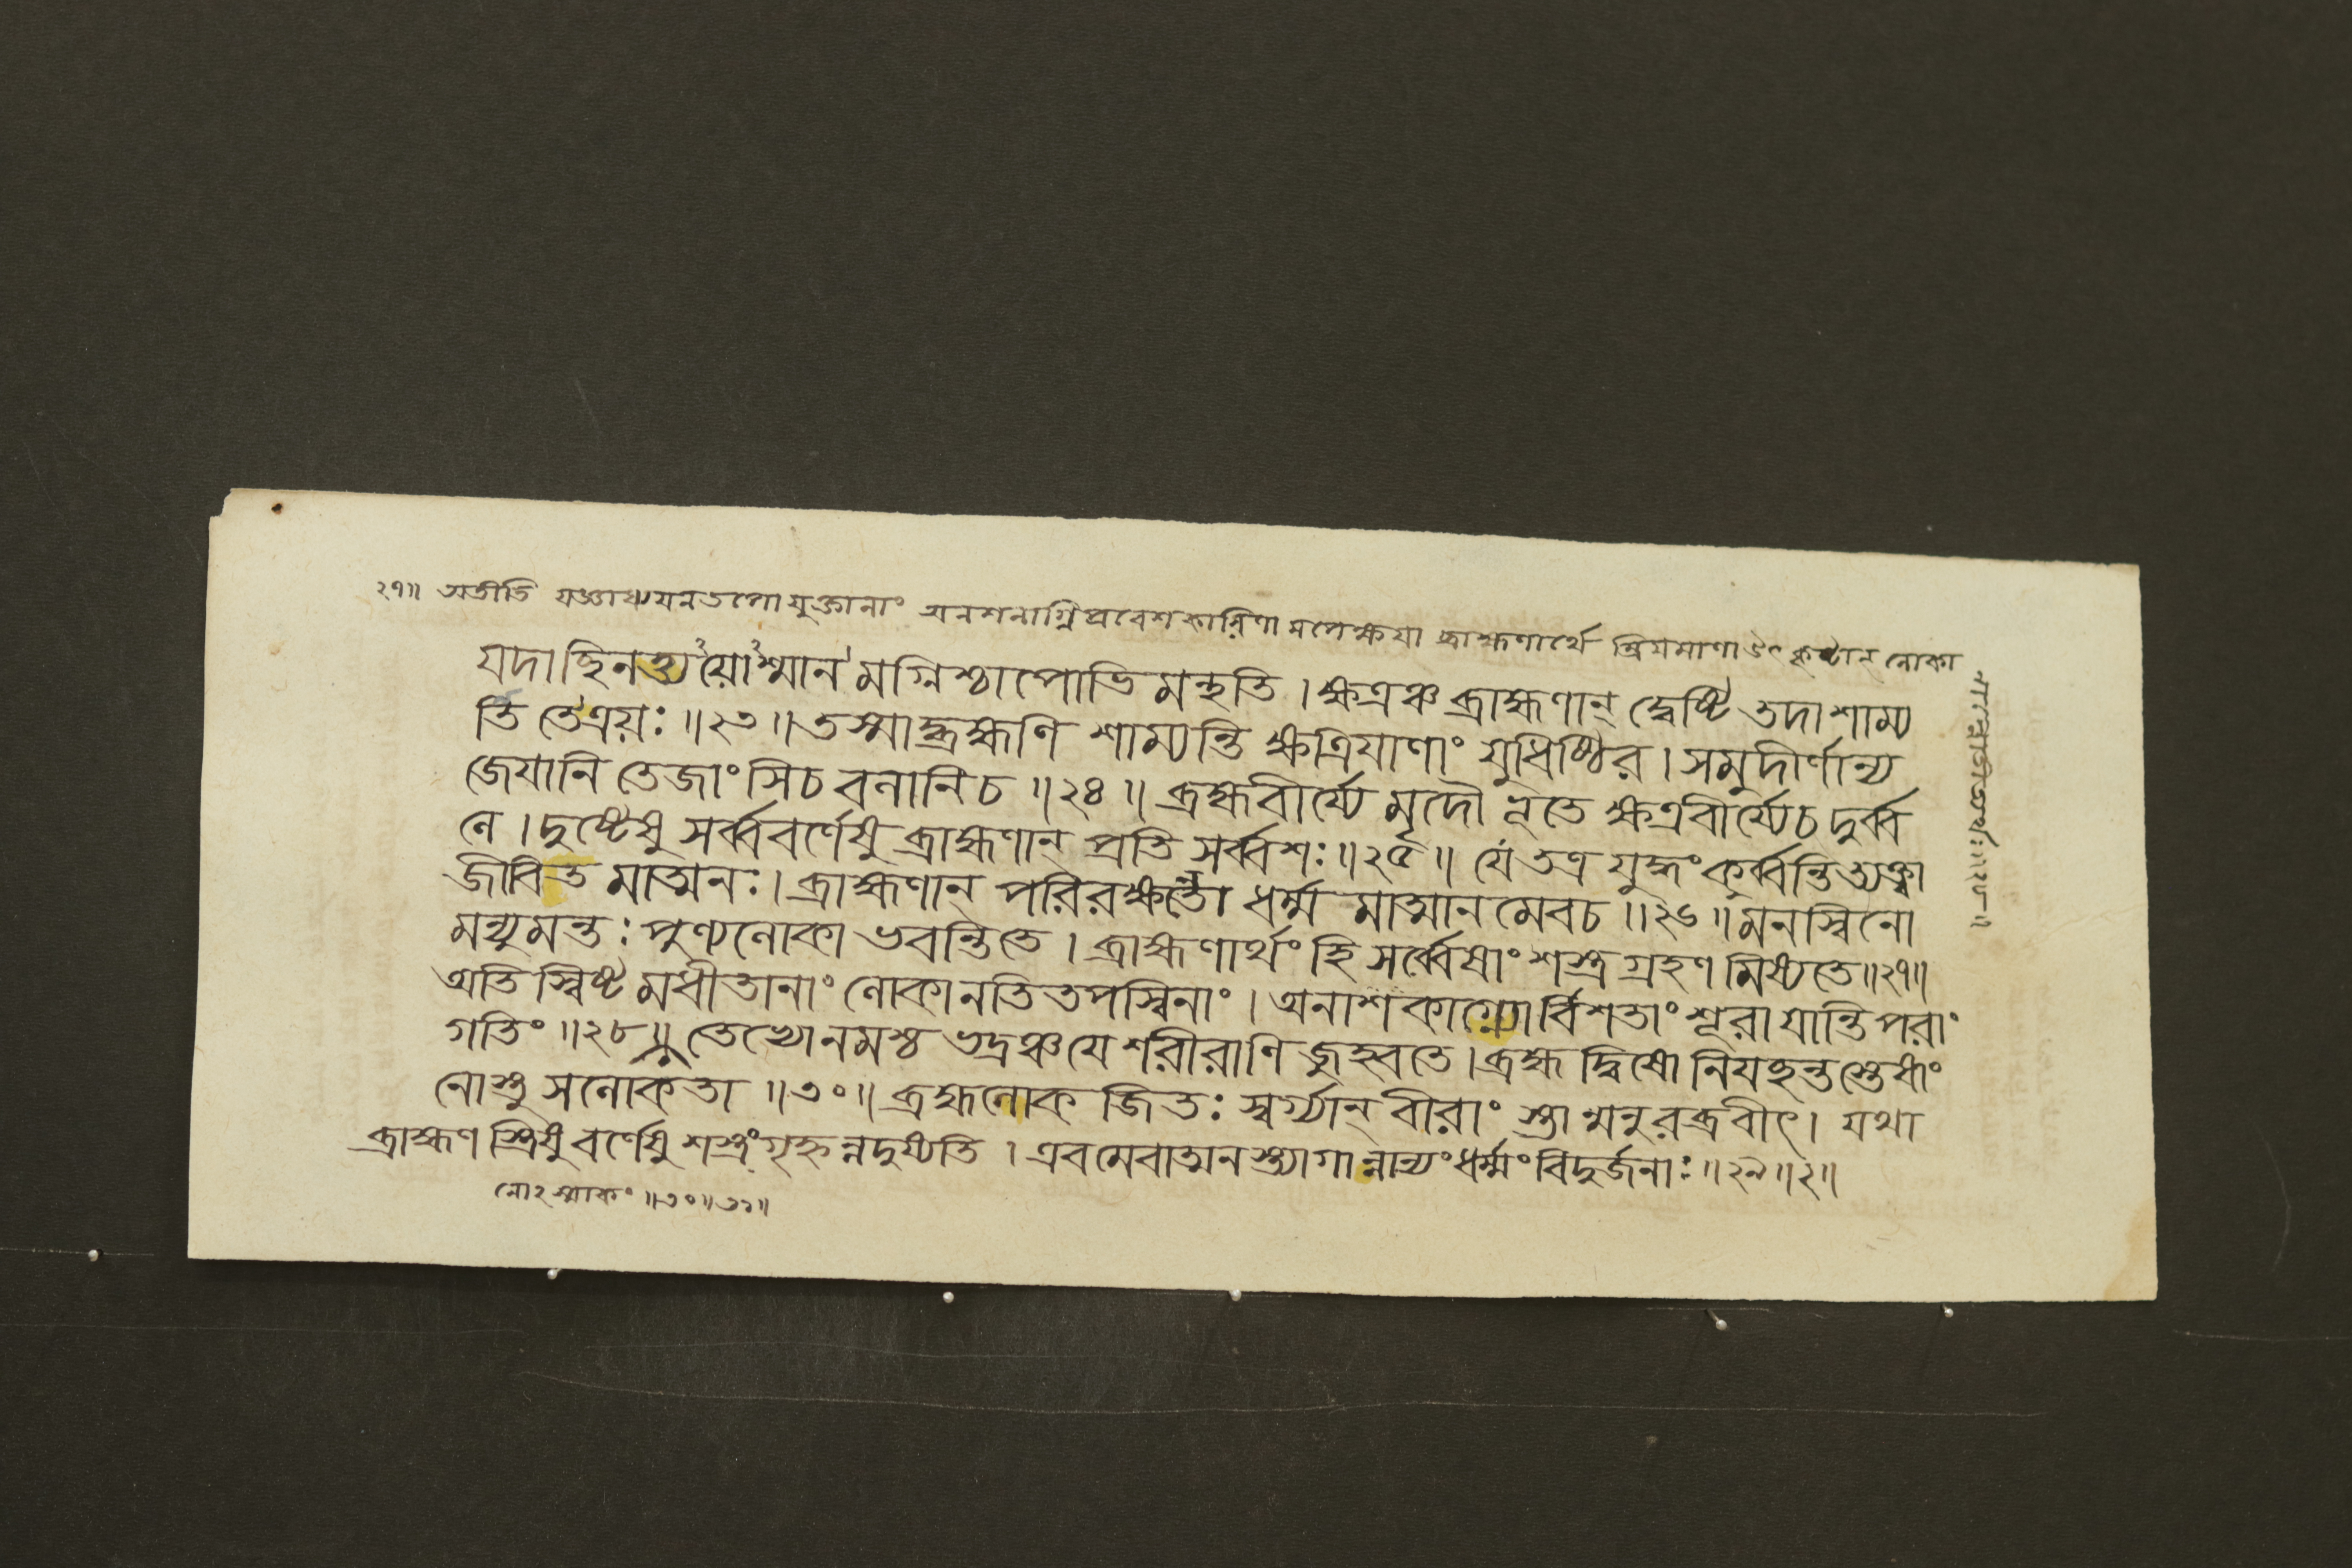 ২৭॥ অতীতি যজ্ঞাধ্যযনতপোযুক্তানাং অনশনাগ্নিপ্রবেশকারিণা মপেক্ষযা ব্রাহ্মণার্থে ম্রিযমাণা উৎকৃষ্টান্ লোকা
যদা ছিনত্ত্য য়োশ্মান মগ্নিশ্চাপোভি মন্থতি । ক্ষত্রঞ্চ ব্রাহ্মণান্ দ্বেষ্টি তদা শাম্য
ন্তি তেত্রয়ঃ ॥২৩॥ তস্মাদ্ব্রহ্মণি শাম্যন্তি ক্ষত্রিযাণাং যুধিষ্ঠির । সমুদীর্ণান্য
জেযানি তেজাংসিচ বলানিচ ॥২৪॥ ব্রহ্মবীর্য্যে মৃদৌ ভূতে ক্ষত্রবীর্য্যেচ দুর্ব্ব
লে । দুষ্টেষু সর্ব্ববর্ণেষু ব্রাহ্মণান্ প্রতি সর্ব্বশঃ ॥২৫॥ যে তত্র যুদ্ধং কুর্ব্বন্তি ত্যক্ত্বা
জীবিত মাত্মনঃ । ব্রাহ্মণান্ পরিরক্ষন্তো ধর্ম্ম মাত্মানমেবচ ॥২৬॥ মনস্বিনো
মন্যুমন্তঃ পুণ্যলোকা ভবন্তিতে । ব্রাহ্মণার্থং হি সর্ব্বেষাং শস্ত্রগ্রহণ মিষ্যতে॥২৭॥
অতি স্বিষ্ট মধীতানাং লোকানতিতপস্বিনাং । অনাশকাগ্ন্যোর্বিশতাং শূরা যান্তি পরাং
গতিং ॥২৮॥ তেভ্যোনমশ্চ ভদ্রঞ্চ যে শরীরাণি জুহ্বতে । ব্রহ্ম দ্বিষো নিযচ্ছন্তস্তেষাং
নোস্তু সলোকতা ॥৩০॥ ব্রহ্মলোক জিতঃ স্বর্গ্যান্ বীরাং স্তা ন্মনুরব্রবীৎ । যথা
ব্রাহ্মণ স্ত্রিষু বর্ণেষু শস্ত্রং গৃহ্নন্নদুষ্যতি । এবমেবাত্মনস্ত্যাগান্নান্যং ধর্ম্মং বিদুর্জনাঃ ॥২৯॥২॥
নোঽস্মাকং ॥৩০॥৩১॥